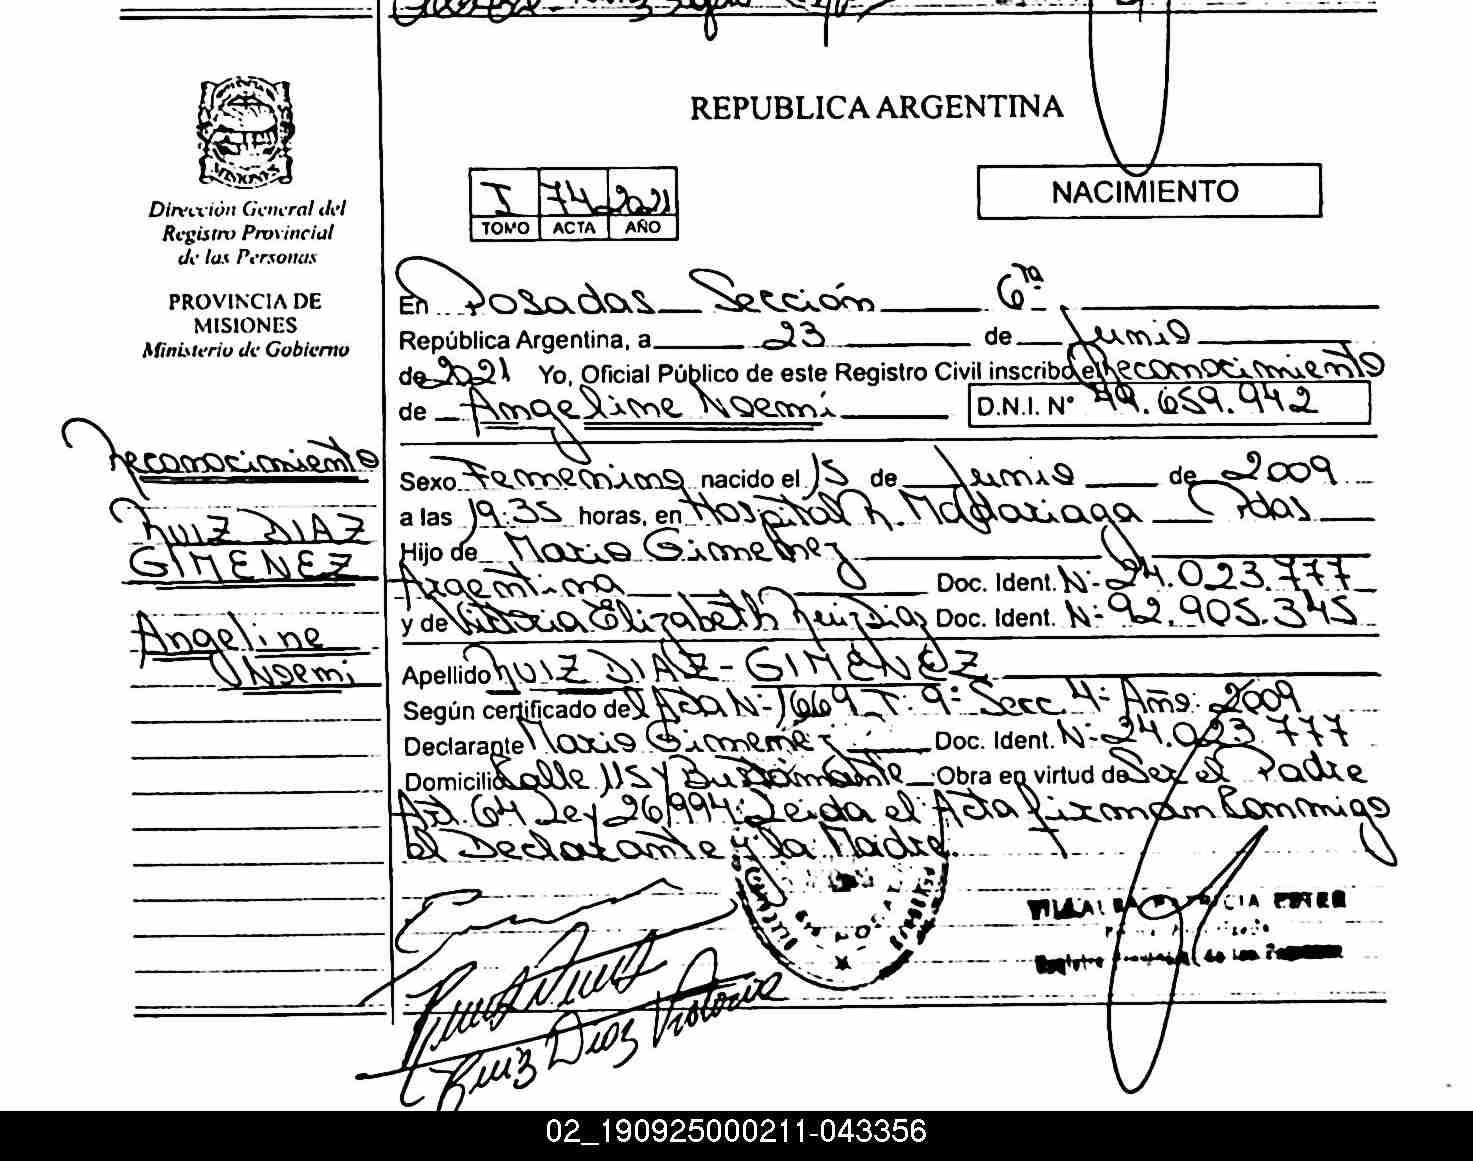 REPUBLICA ARGENTINA
I 74 2021
TOMO ACTA AÑO
NACIMIENTO
Dirección General del
Registro Provincial
de las Personas
PROVINCIA DE
MISIONES
Ministerio de Gobierno
En Posadas Sección 6ta
República Argentina, a 23 de Junio
de 2021 Yo, Oficial Público de este Registro Civil inscribo el Reconocimiento
de Angeline Noemi D.N.I. N° 49.659.942
Reconocimiento
RUIZ DIAZ
GIMENEZ
Angeline
Noemi
Sexo Femenino nacido el 15 de Junio de 2009
a las 19:35 horas, en Hospital R. Madariaga Pdas
Hijo de Mario Gimenez
Argentina Doc. Ident. N- 24.023.777
y de Victoria Elizabeth Ruiz Diaz Doc. Ident. N- 92.905.345
Apellido RUIZ DIAZ - GIMENEZ
Según certificado del Acta N- 1669 T. 9- Secc 4- Año 2009
Declarante Mario Gimenez Doc. Ident. N- 24.023.777
Domicilio Calle 115 y Bustamante Obra en virtud de Ser el Padre
Art. 64 Ley 26994. Leida el Acta firman Conmigo
el Declarante y la Madre.
Ruiz Diaz Victoria
02_190925000211-043356